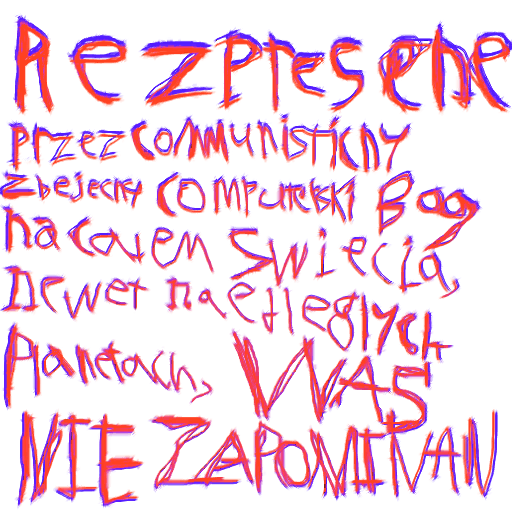 Rezpresehe
przez communisticny
zbejecny computerski Bog
na calem Swiecia,
Dewet na edleglych
Planetach,
WAS
NIE ZAPOMINAN